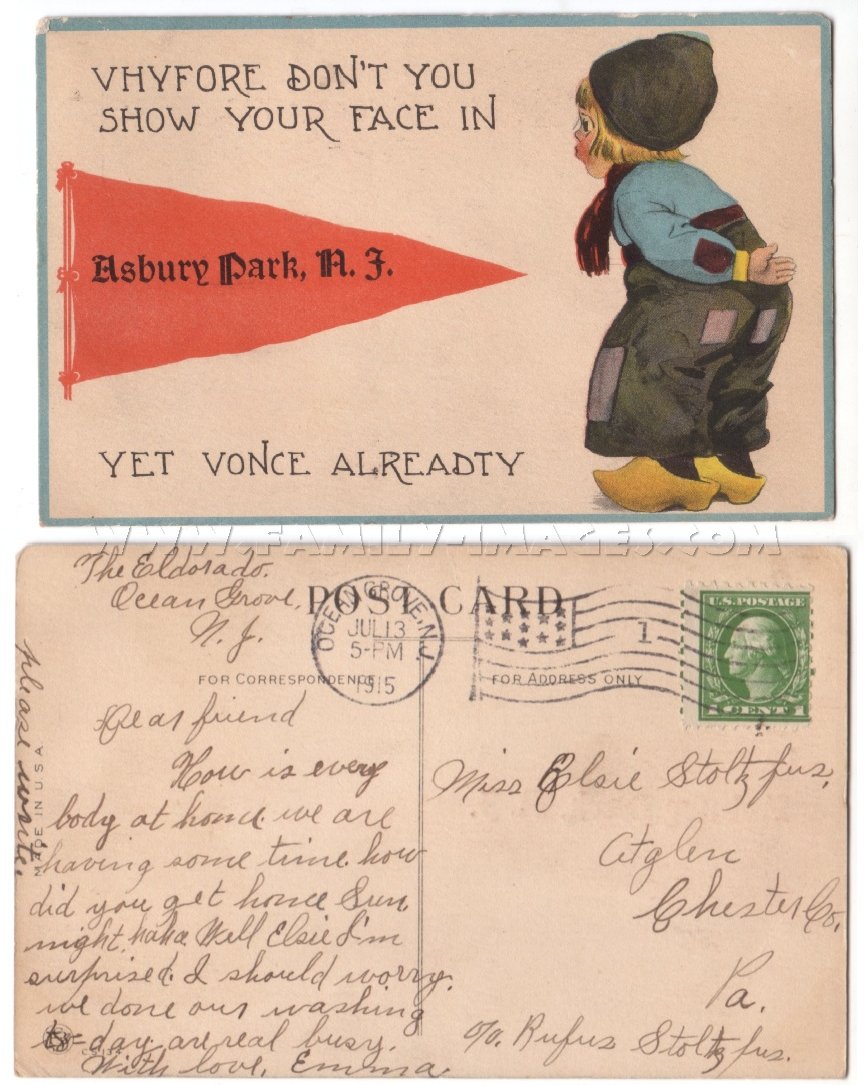 VHYFORE DON'T YOU
SHOW YOUR FACE IN
Asbury Park, N. J.
YET VONCE ALREADTY
WWW.FAMILY-IMAGES.COM
The Eldorado.
Ocean Grove,
N. J.
POST CARD
OCEAN GROVE, N.J.
JUL 13
5-PM
1915
1
U.S. POSTAGE
1 CENT 1
FOR CORRESPONDENCE
FOR ADDRESS ONLY
Dear friend
How is every
body at home. we are
having some time. how
did you get home Sun
night, haha Well Elsie I'm
surprised. I should worry.
we done our washing
to=day. are real busy.
With love, Emma.
please write.
MADE IN U.S.A.
Miss Elsie Stoltzfus,
Atglen
Chester Co,
Pa.
c/o. Rufus Stoltzfus.